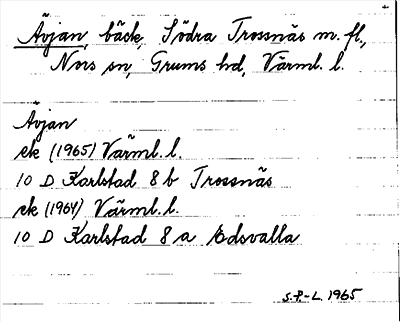 Ävjan, bäck, Södra Trossnäs m. fl.,
Nors sn, Grums hd, Värml. l.
Ävjan
ek (1965) Värml. l.
10 D Karlstad 8 b Trossnäs
ek (1964) Värml. l.
10 D Karlstad 8 a Edsvalla
S.P-L. 1965